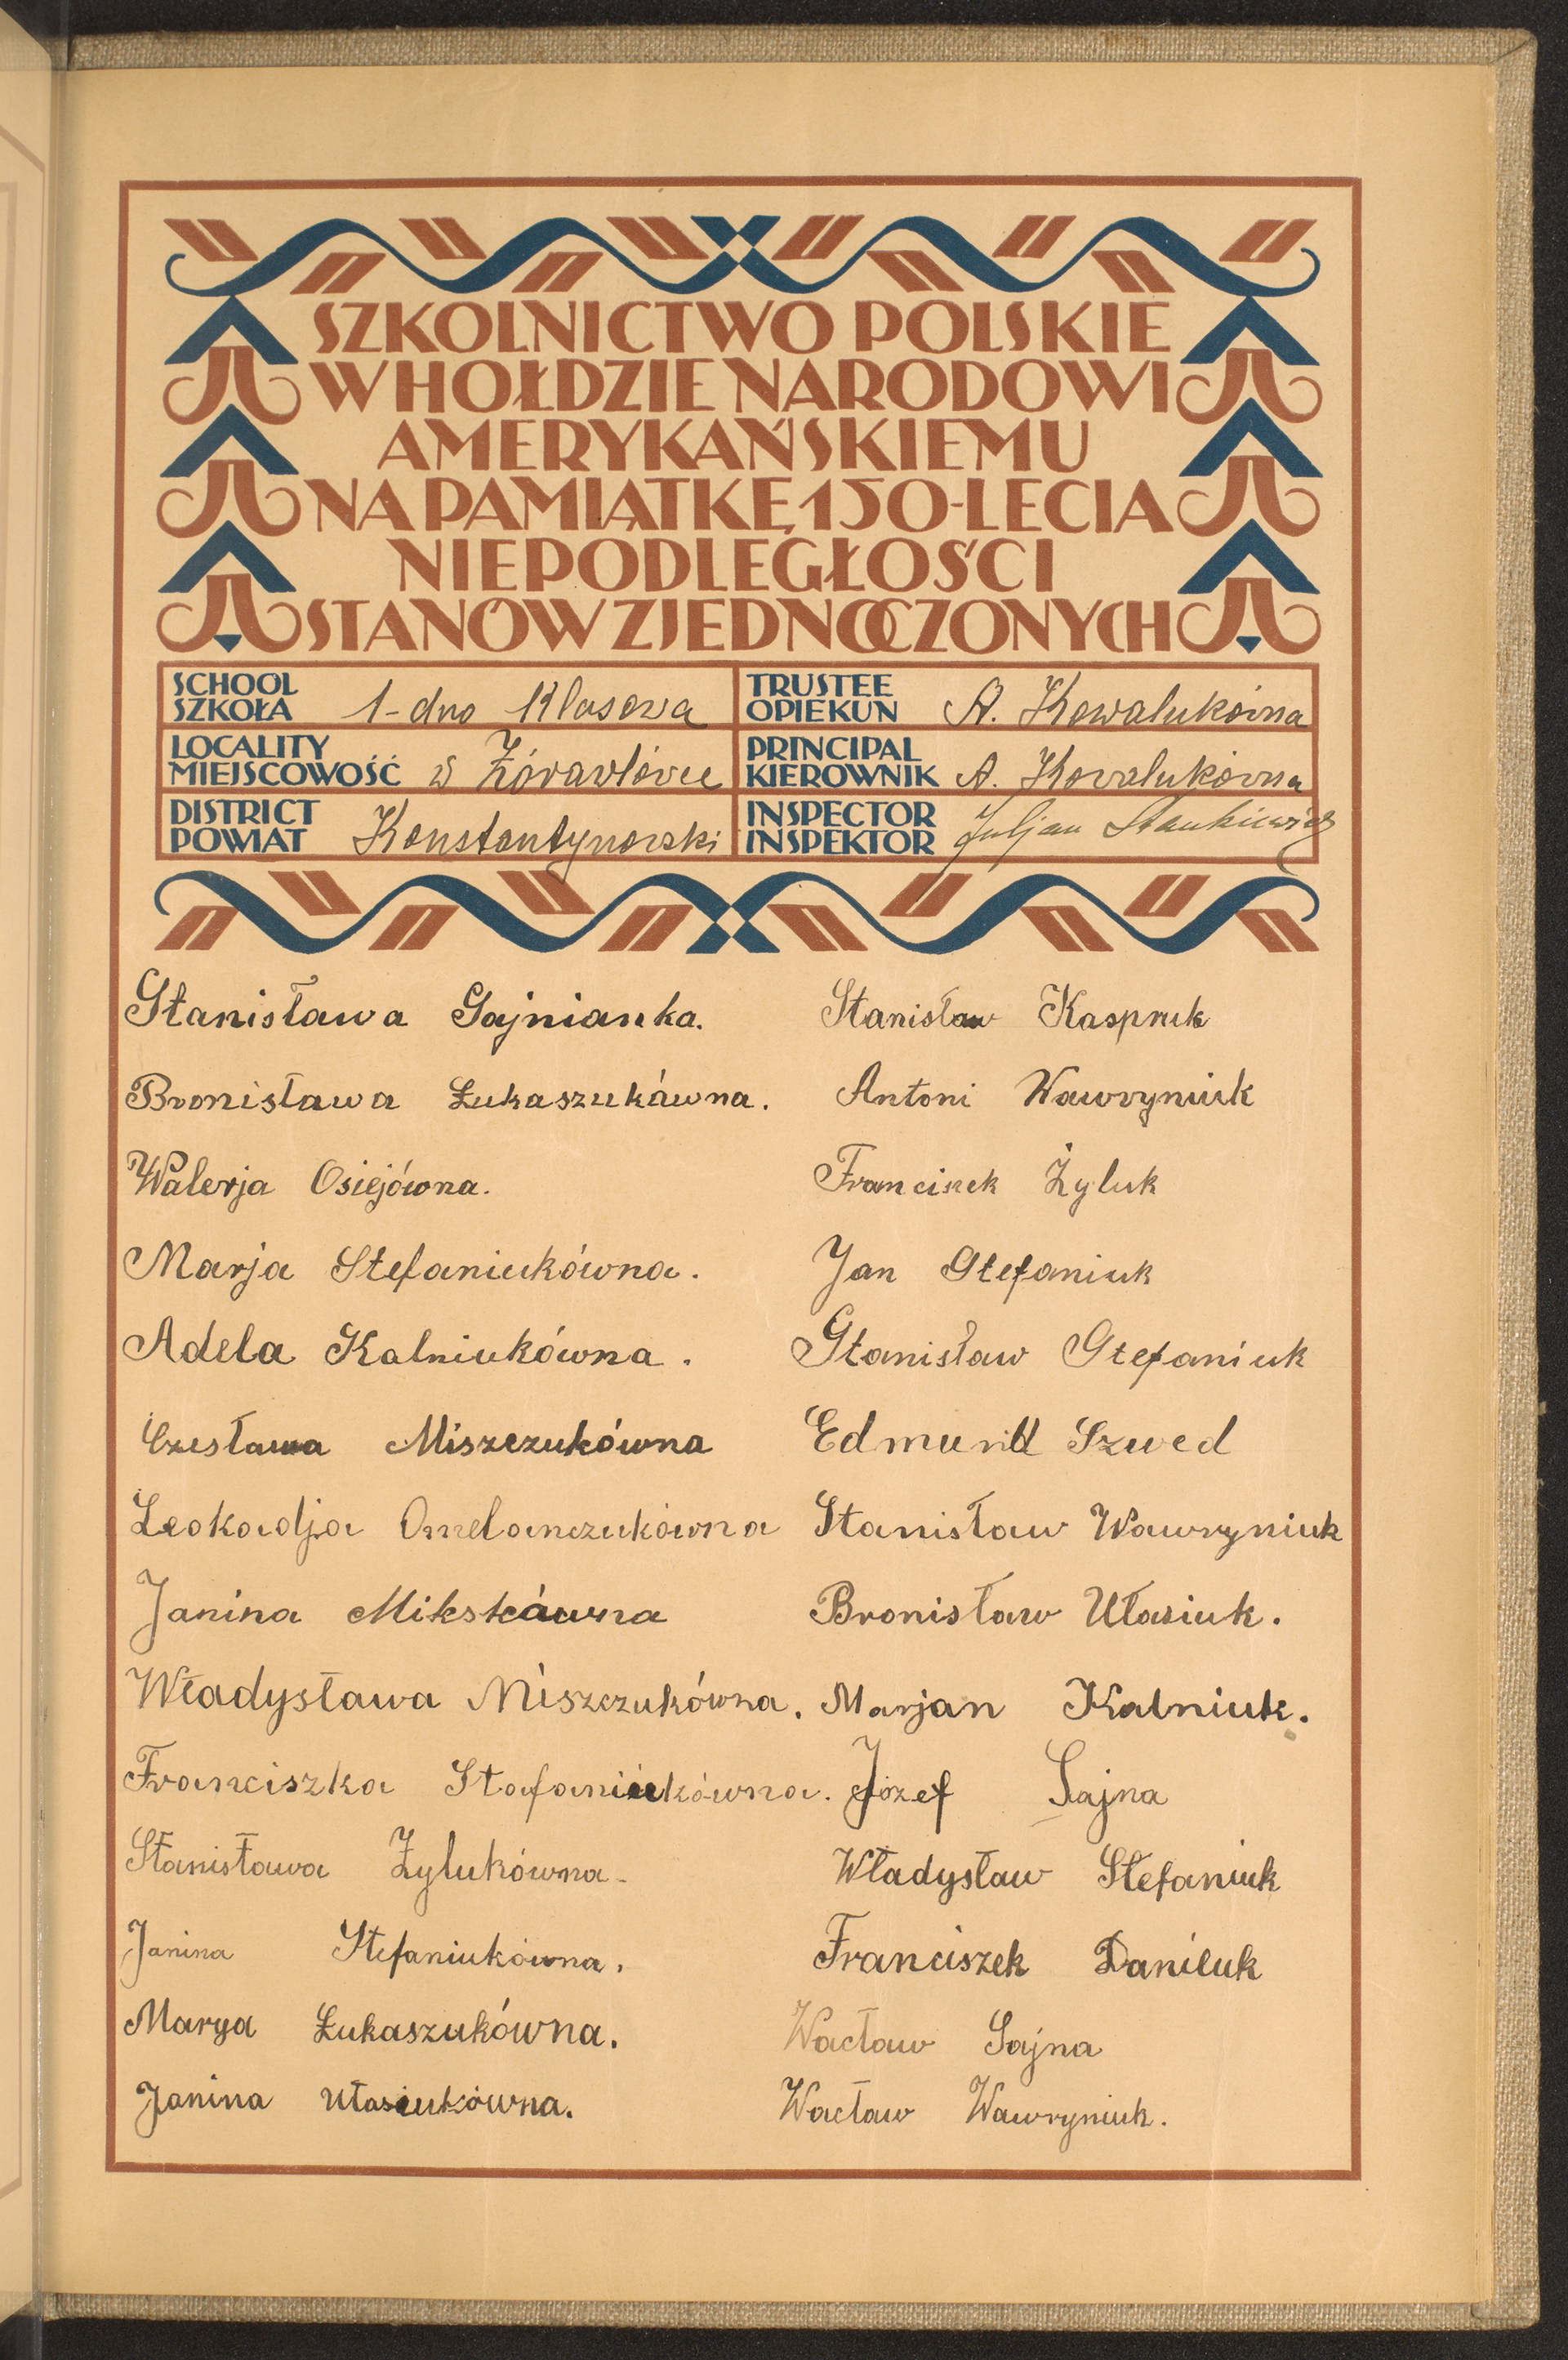 SZKOLNICTWO POLSKIE
W HOŁDZIE NARODOWI
AMERYKAŃSKIEMU
NA PAMIĄTKĘ 150-LECIA
NIEPODLEGŁOŚCI
STANÓW ZJEDNOCZONYCH
SCHOOL
SZKOŁA 1-dno Klasowa
TRUSTEE
OPIEKUN A. Kowalukówna
LOCALITY
MIEJSCOWOŚĆ w Żórawlówce
PRINCIPAL
KIEROWNIK A. Kowalukówna
DISTRICT
POWIAT Konstantynowski
INSPECTOR
INSPEKTOR Juljan Stankiewicz
Stanisława Sajnianka.
Bronisława Łukaszukówna.
Walerja Osiejówna.
Marja Stefaniukówna.
Adela Kalniukówna.
Czesława Miszczukówna
Leokadja Omelanczukówna
Janina Mikskówna
Władysława Miszczukówna.
Franciszka Stafaniukówna.
Stanisława Żylukówna.
Janina Stefaniukówna.
Marya Łukaszukówna.
Janina Ułasiukówna.
Stanisław Kaspruk
Antoni Wawryniuk
Franciszek Żyluk
Jan Stefaniuk
Stanisław Stefaniuk
Edmund Szwed
Stanisław Wawryniuk
Bronisław Ułasiuk.
Marjan Kalniuk.
Józef Sajna
Władysław Stefaniuk
Franciszek Daniluk
Wacław Sajna
Wacław Wawryniuk.